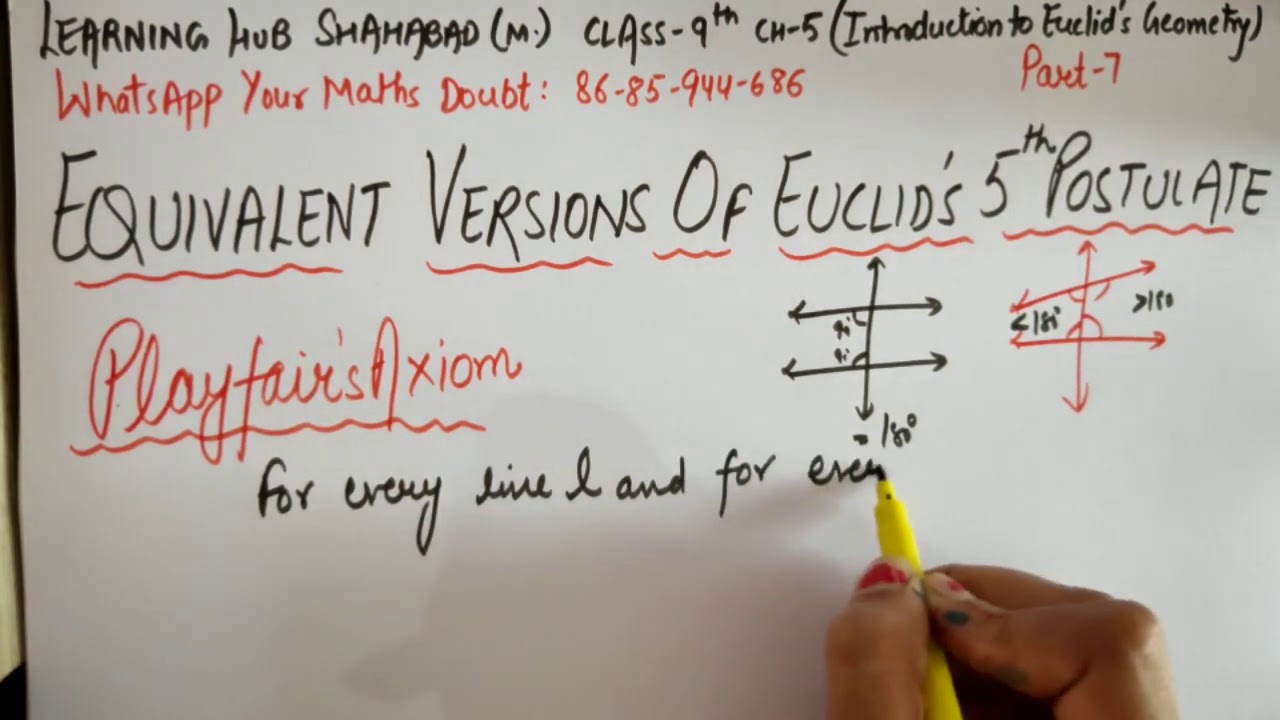 LEARNING HUB SHAHABAD (M.) CLASS-9th CH-5 (Introduction to Euclid's Geometry)
WhatsApp Your Maths Doubt: 86-85-944-686 Part-7
EQUIVALENT VERSIONS OF EUCLID'S 5th POSTULATE
Playfair's Axiom
<180° >180
= 180°
for every line l and for every